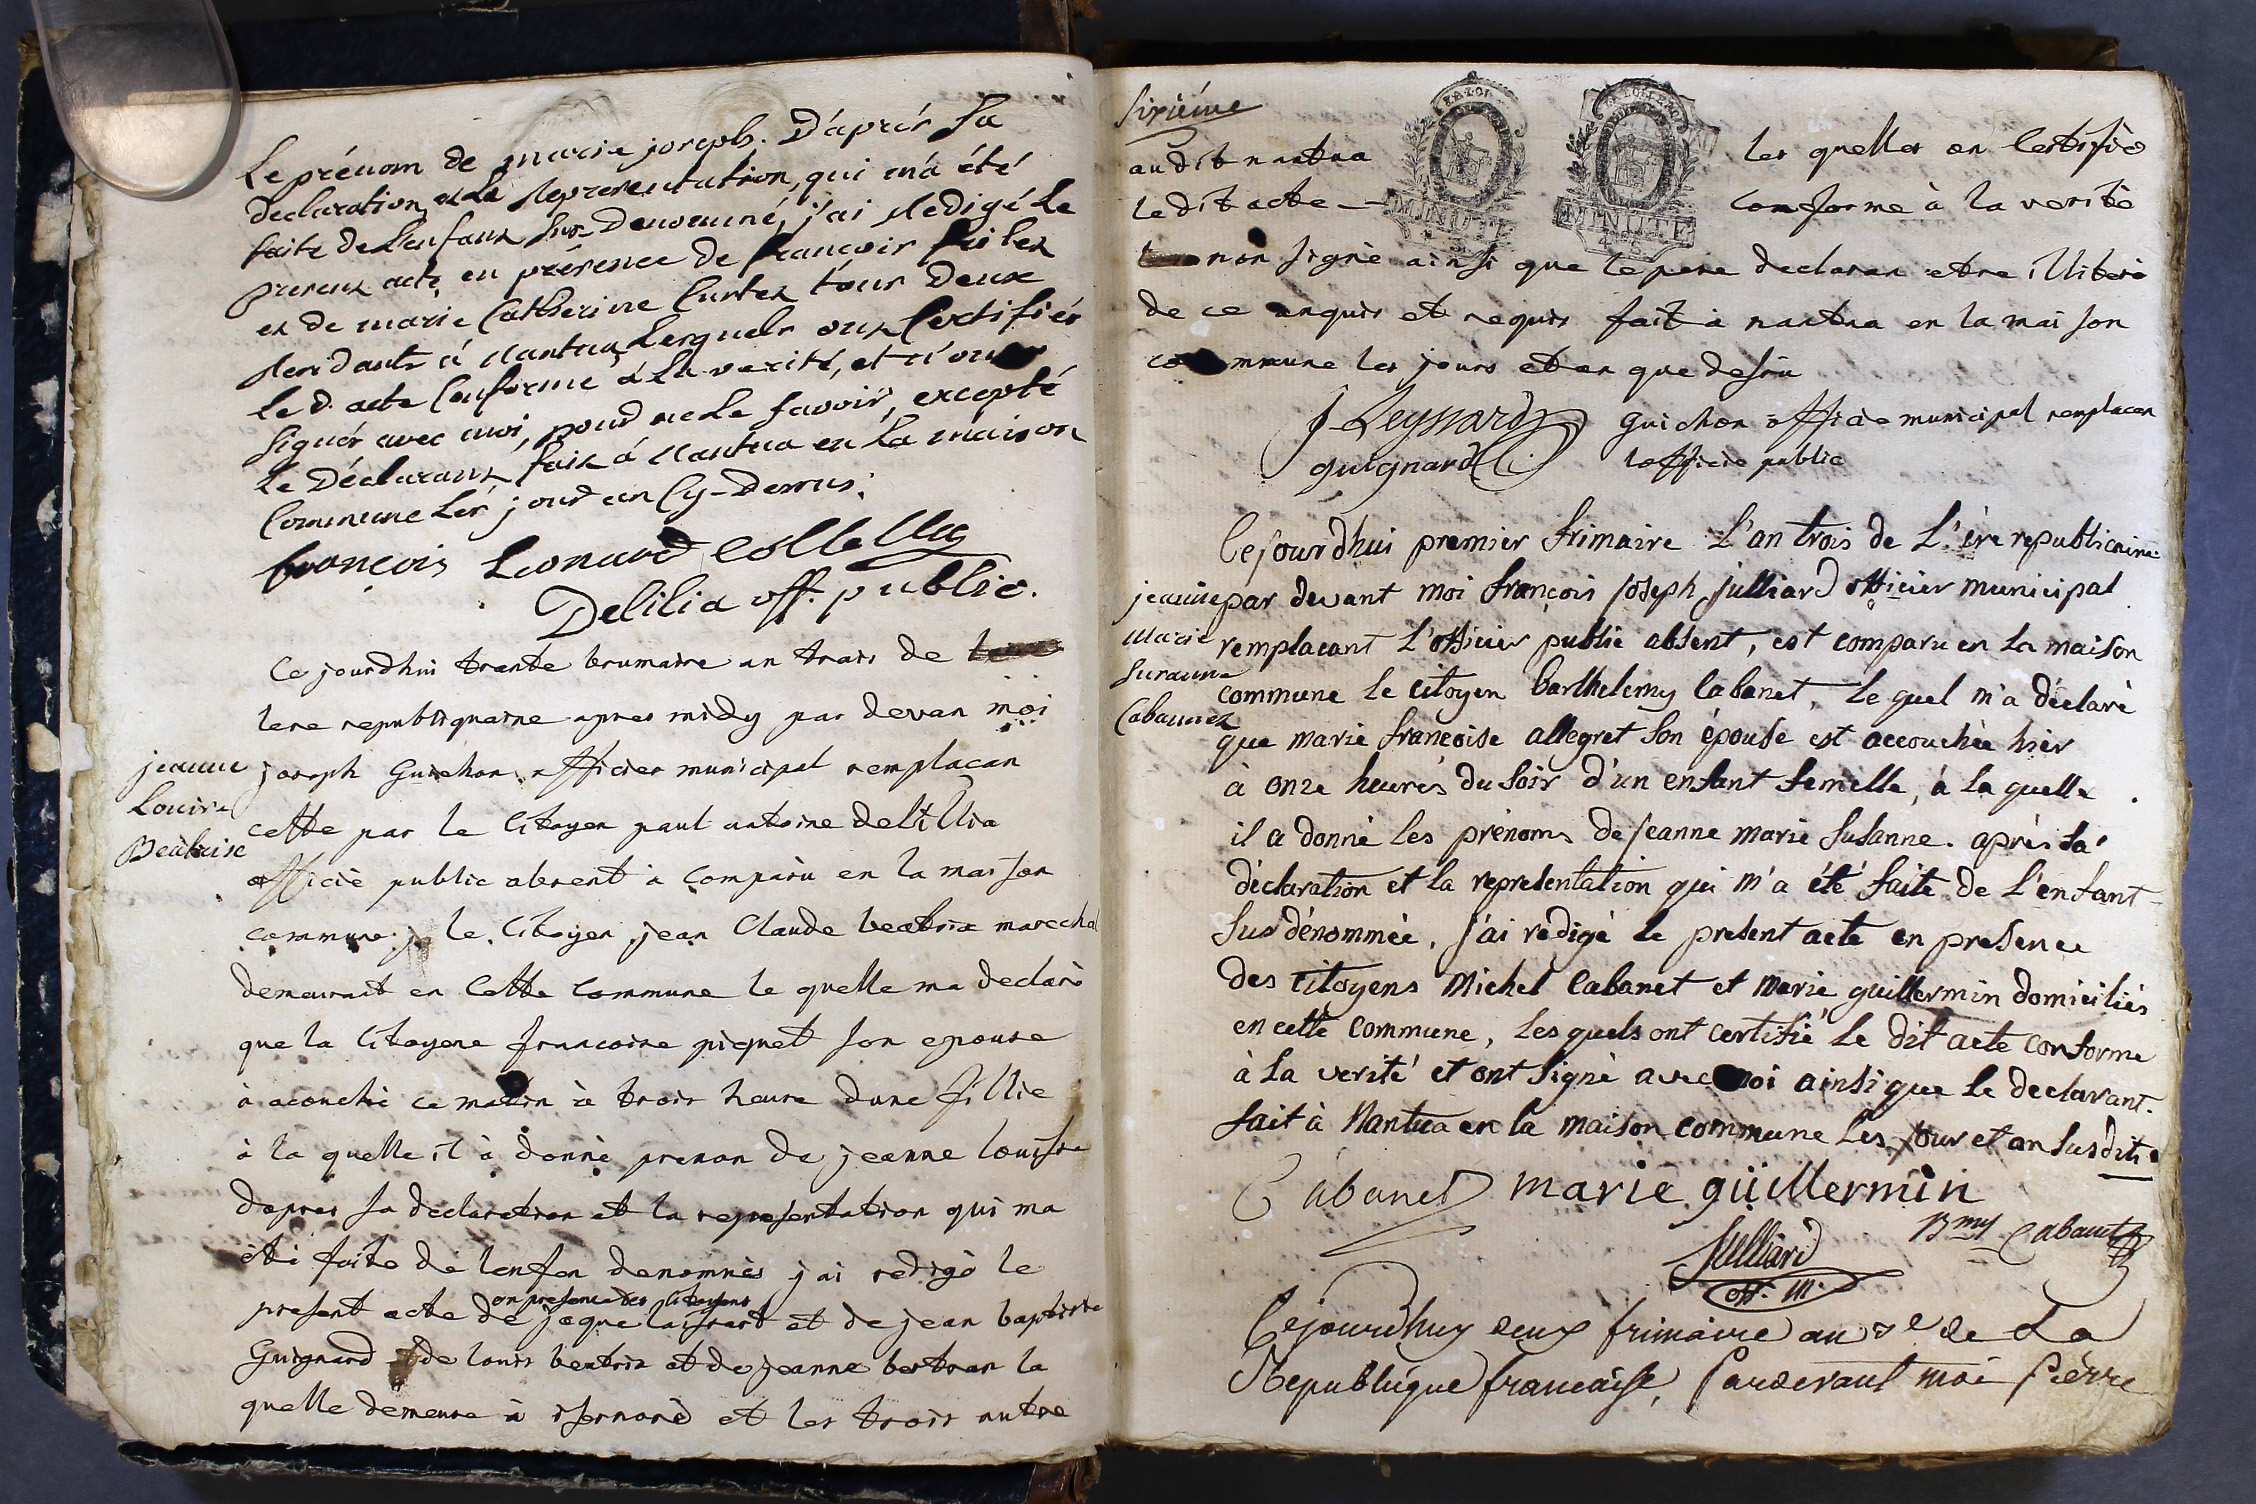 Le prénom de marie joseph. D'aprés sa
declaration et la Representation, qui m'a été
faite de L'enfant sus-Denommé, j'ai Redigé Le
present acte en présence de françois
et de marie Catherine Curtet tous Deux
Residants à Nantua, Lesquels ont Certifiés
Le d. acte Conforme à La verité, et n'ont
signér avec moi, pour ne Le savoir, excepté
Le Déclarant, fait à Nantua en La maison
Commune Les jour et an Cy-Dessus.
françois Leonard Collet
Delilia off. public.
Ce jourdhui trante brumaire an trois de
lere republiquaine apres midy par devan moi
jeanne
Louise
Béatrise
joseph Guichon officier municipal remplacan
cette par le Citoyen paul antoine delillia
officié public absent à comparu en la maison
commune le Citoyen jean Claude beatrix marechal
demeurant en Cette commune le quelle ma declaré
que la Citoyene francoise piquet son epouse
à acouché ce matin à trois heure dune fillie
à la quelle il à donné prenon de jeanne louise
dapres sa declaration et la representation qui ma
été faite de lenfan denommés j'ai redigé le
en presence des citoyens
present acte de jaque laissart et de jean baptiste
Guignard et de louis beatrix et de jeanne bertran la
quelle demeure à isernore et les trois autre
Sixiéme
audit nantua les quelles on Certifié
ledit acte — Comforme à la verité
non signé ainsi que le pere declaran etre illiteré
de ce enquis et requis fait à nantua en la maison
commune les jours et an que desu
J Leyssard Guichon officie municipal remplacan
guignard loffice public
Cejourdhui premier frimaire L'an trois de L'ére republicaine
jeanne
Marie
Susanne
Cabannet
par devant moi françois joseph Julliard officier municipal
remplacant L'officier public absent, est comparu en la maison
commune le citoyen barthelemy Cabanet, le quel m'a déclaré
que marie francoise allegret son épouse est accouchée hier
à onze heures du soir d'un enfant femelle, à la quelle
il a donné les prénoms de jeanne marie susanne. après sa
déclaration et la representation qui m'a été faite de L'enfant
sus dénommée, j'ai rédigé le present acte en presence
des citoyens Michel Cabanet et Marie guillermin domiciliés
en cette commune, les quels ont certifié le dit acte conforme
à la verité et ont signé avec moi ainsi que le declarant.
fait à Nantua en la maison commune les jour et an susdits
Cabanet marie güillermin
Bmy Cabanet
Julliard
off. m.
Cejourdhuy deux frimaire an 3e de La
Republique francaise, Pardevant moi Pierre